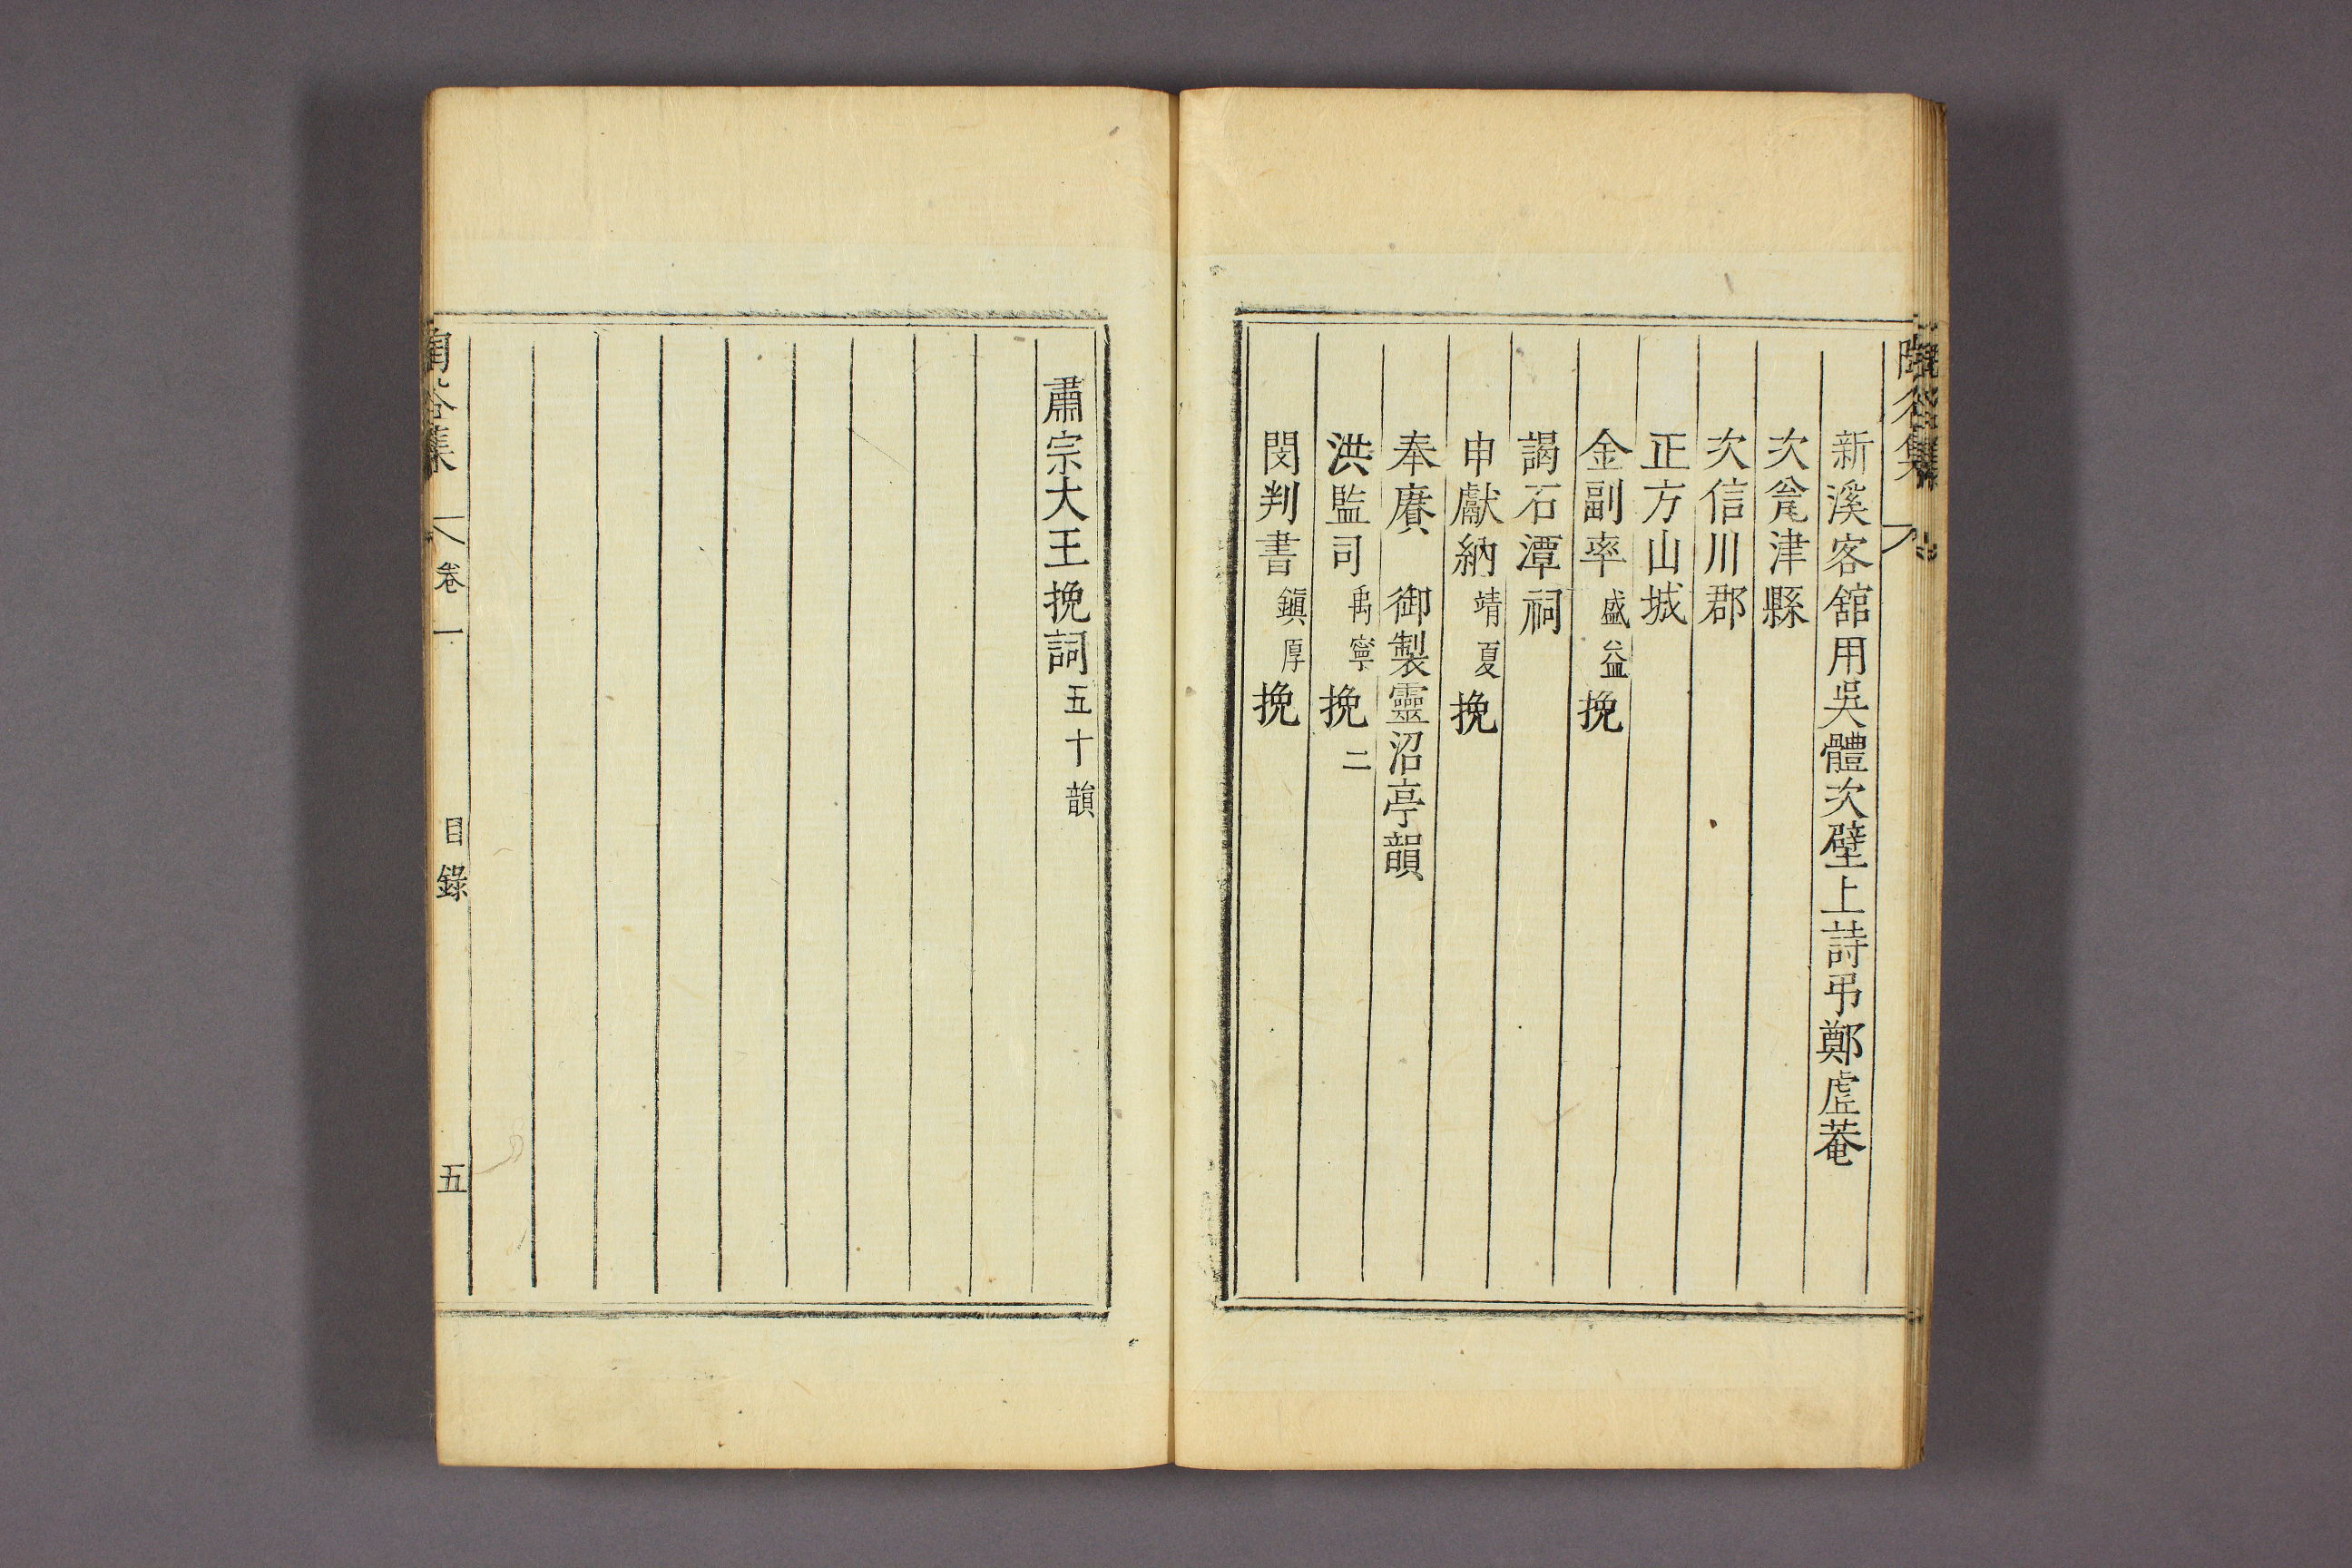 新溪客舘用吳體次壁上詩弔鄭虛菴
次瓮津縣
次信川郡
正方山城
金副率盛益挽
謁石潭祠
申獻納靖夏挽
奉賡 御製靈沼亭韻
洪監司禹寧挽二
閔判書鎭厚挽
肅宗大王挽詞五十韻
陶谷集
卷一
目錄
五